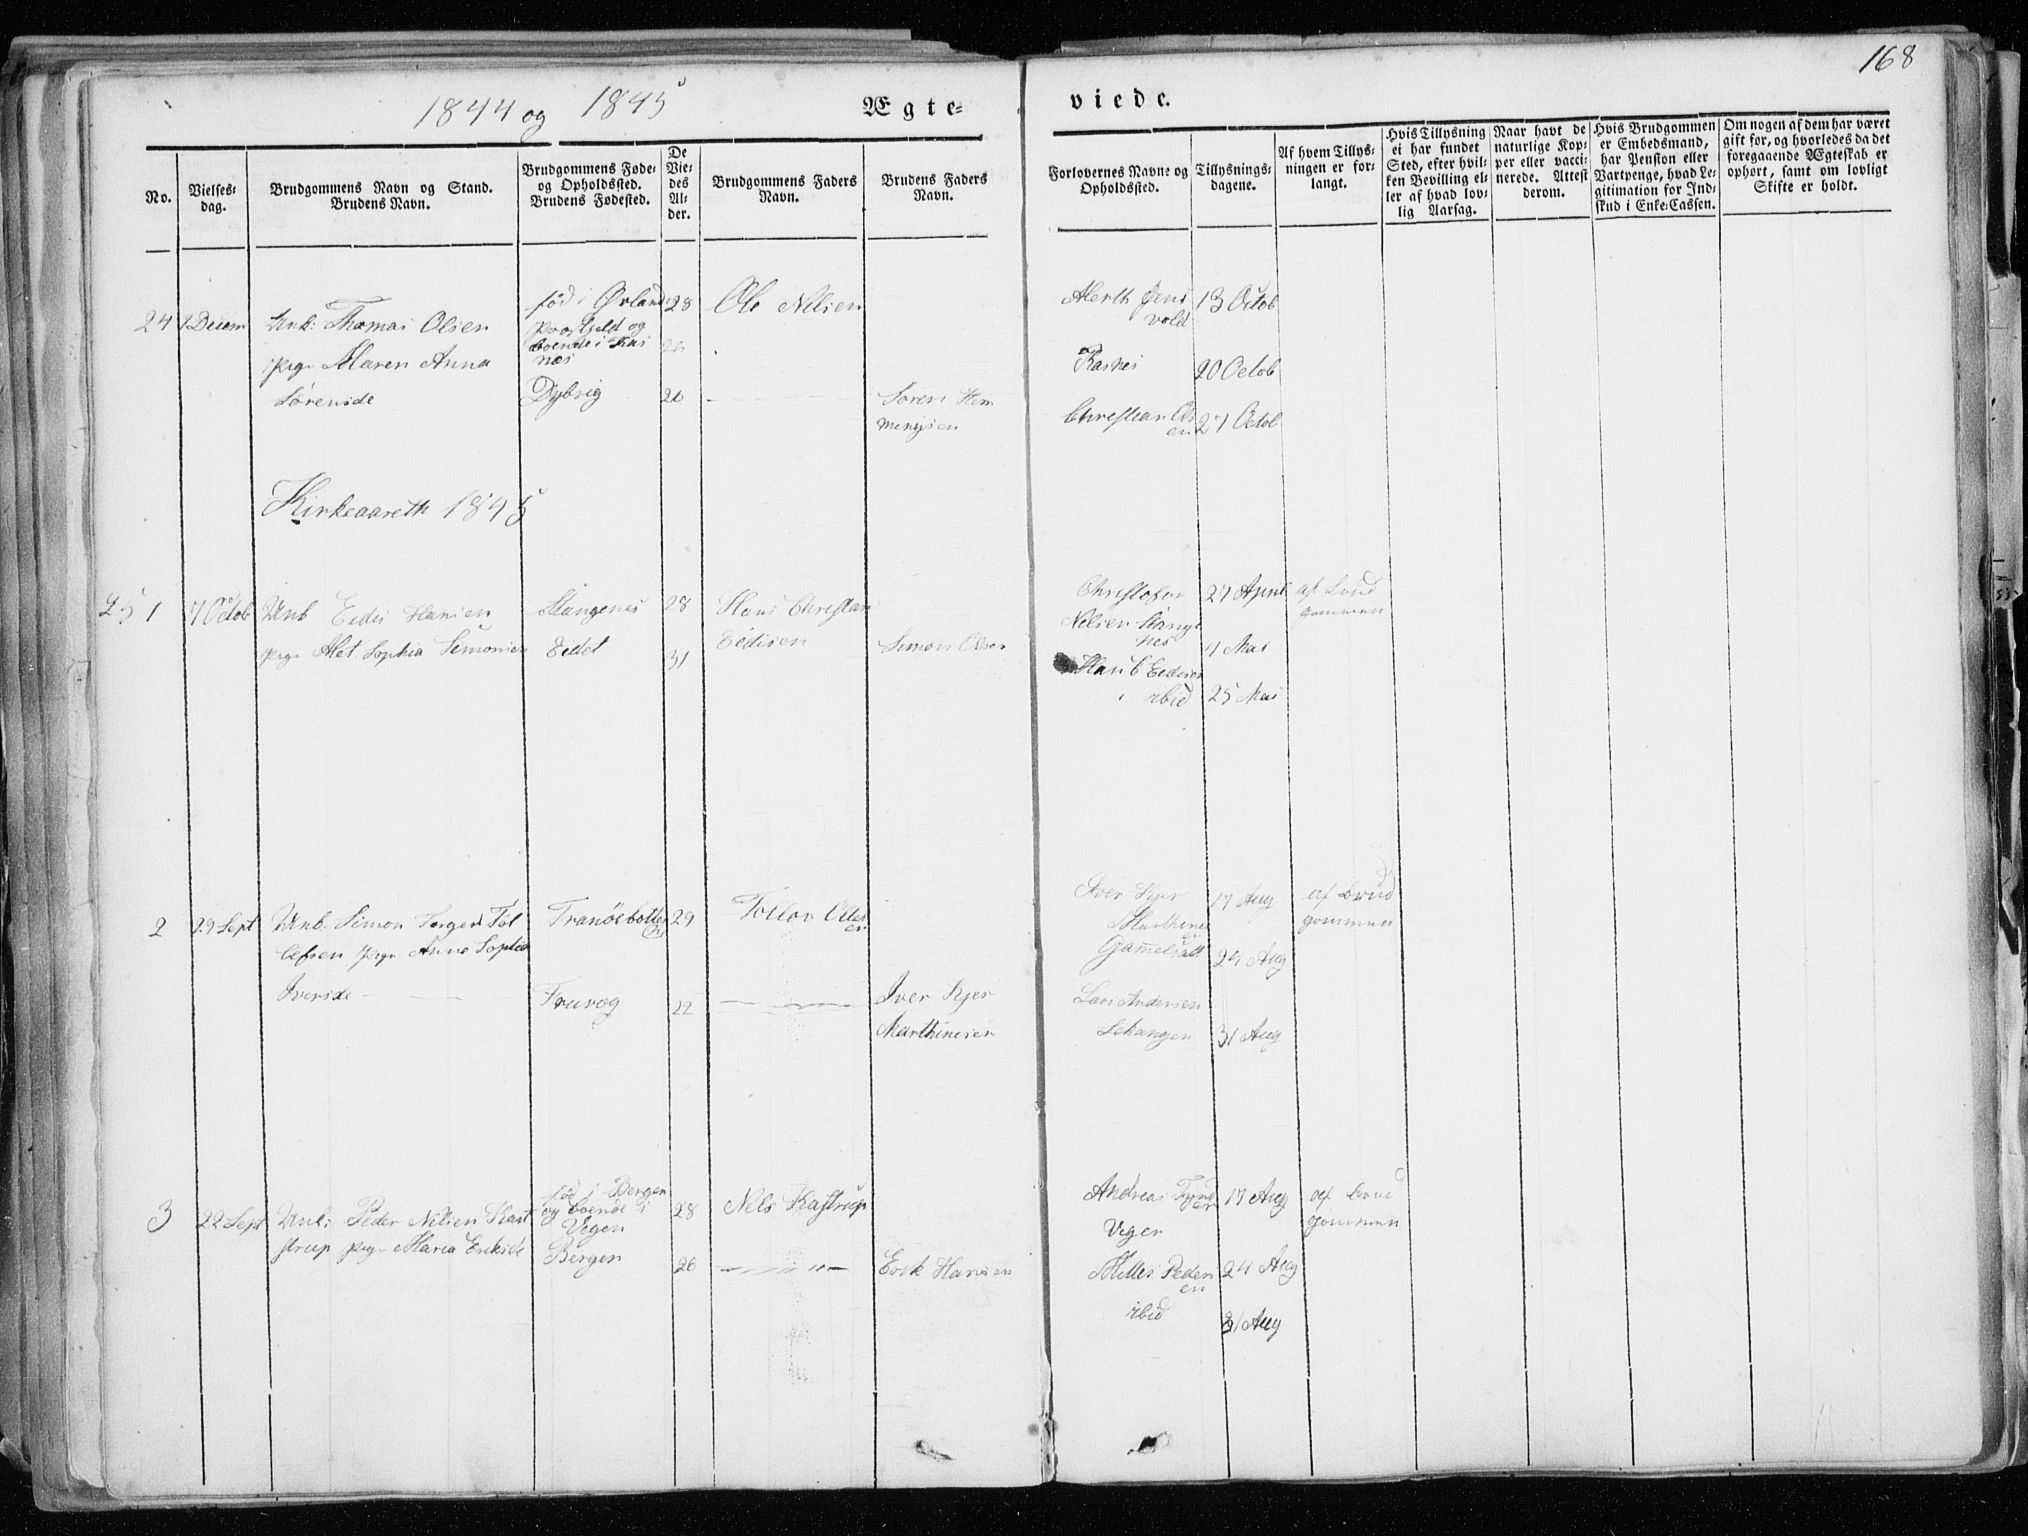 168
1844 og 1845
Ægte-
viede.
No.
Vielses-
dag.
Brudgommens Navn og Stand.
Brudens Navn.
Brudgommens Føde-
og Opholdssted.
Brudens Fødested.
De
Vie-
des
Al-
der.
Brudgommens Faders
Navn.
Brudens Faders
Navn.
Forlovernes Navne og
Opholdssted.
Tillysnings-
dagene.
Af hvem Tillys-
ningen er for-
langt.
Hvis Tillysning
ei har fundet
Sted, efter hvil-
ken Bevilling el-
ler af hvad lov-
lig Aarsag.
Naar havt de
naturlige Kop-
per eller vacci-
nerede. Attest
derom.
Hvis Brudgommen
er Embedsmand,
har Pension eller
Vartpenge, hvad Le-
gitimation for Ind-
skud i Enke-Cassen.
Om nogen af dem har været
gift for, og hvorledes da det
foregaaende Ægteskab er
ophørt, samt om lovligt
Skifte er holdt.
24
Decem
Unk: Thomas Olsen
pige Maren Anna
Sørensde
fød i Ørland
Prostgield og
boende i Kas
næs
Dybvig
28
Ole Nilsen
Søren Hem
mingsen
vold
Kasnes
Christian Ols
en
13 Octob
20 Octob
27 Octob
Kirkeaareth 1845
25 1
7 Octob
Unk Hansen
pige Alet Sophia Simonsen
Stangenes
Eidet
28
31
Hans Christian
Eedisen
Simon Olsen
Christofer
Nilsen Stangenes
Hans C Eedisen
ibid
27 April
4 Mai
25 Mai
af Brud
gommen
2
29 Sept
Unk. Simon Tørger Tol
lefsen pige Anne Sophia
Iversde
Tranøebotten
Fruvog
29
22
Tollov Olles
en
Iver Kjer
Marthinesen
Iver Kjer
Marthines
en
Gammelsatt
Lars Andersen
17 Aug
24 Aug
31 Aug
af Brud
gommen
3
22 Sept
Unk: Peder Nilsen Kast
strup pige Maria Eriksde
fød i Bergen
og boende i
Vegen
Bergen
28
26
Nels Kastrup
Erik Hansen
Andreas
Vegen
Peders
en
ibid
17 Aug
24 Aug
31 Aug
af Brud
gommen